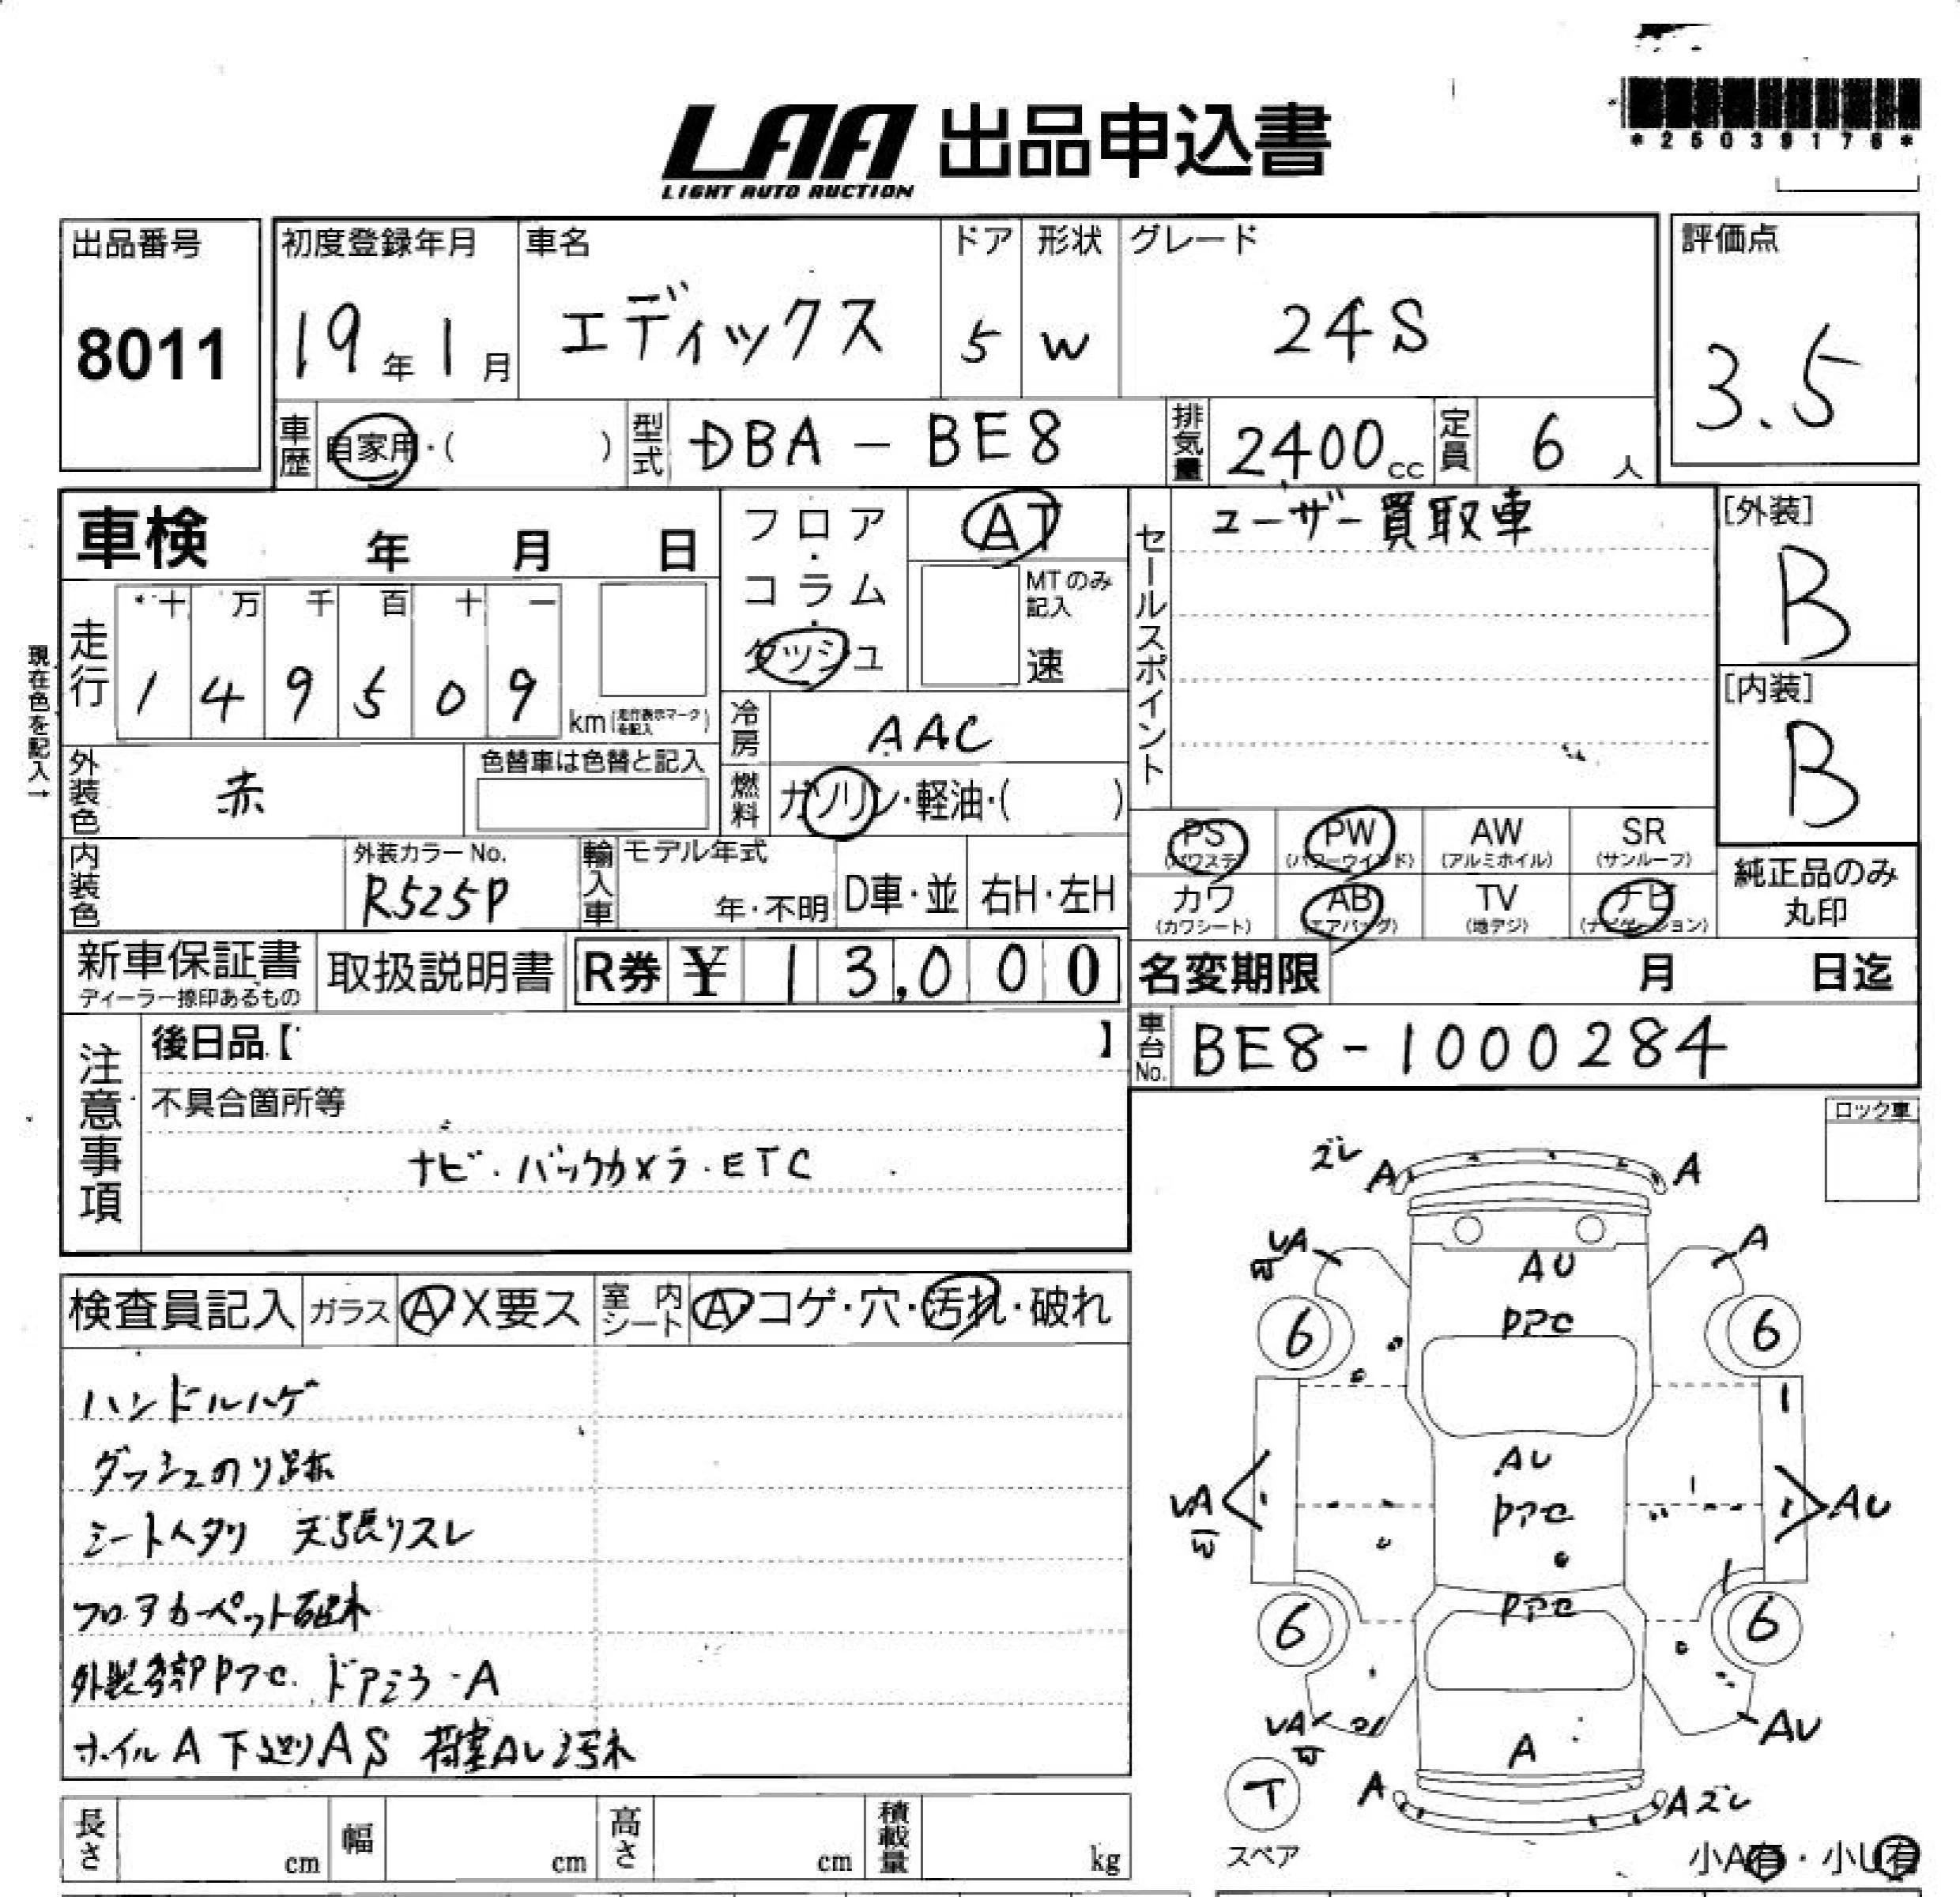 *25039176*
LAA 出品申込書
LIGHT AUTO AUCTION
出品番号 初度登録年月 車名 ドア 形状 グレード 評価点
8011 19年1月 エディックス 5 W 24S 3.5
車歴 自家用・( ) 型式 DBA-BE8 排気量 2400cc 定員 6人
車検 年 月 日 フロア・コラム・ダッシュ AT セールスポイント ユーザー買取車 [外装]
B
MTのみ記入 速
現在色を記入→
走行 十 万 千 百 十 一
1 4 9 5 0 9 km(走行表示マークを記入)
[内装]
B
冷房 AAC
外装色 赤 色替車は色替と記入 燃料 ガソリン・軽油・( )
PS PW AW SR
(パワステ) (パワーウインド) (アルミホイル) (サンルーフ)
内装色 外装カラーNo. R525P 輸入車 モデル年式 年・不明 D車・並 右H・左H
カワ AB TV ナビ
(カワシート) (エアバッグ) (地デジ) (ナビゲーション)
純正品のみ
丸印
新車保証書 取扱説明書 R券 ¥ 13,000 名変期限 月 日迄
ディーラー捺印あるもの
注意事項 後日品【 】 車台No. BE8-1000284
不具合箇所等
ナビ・バックカメラ・ETC
ロック車
検査員記入 ガラス A X要ス 室内シート A コゲ・穴・汚れ・破れ
ハンドルハゲ
ダッシュのり跡
シートヘタリ 天張りスレ
フロアカーペット破れ
外装各部PアC ドアミラーA
ホイルA 下廻りAS 荷室AU汚れ
ズレ A A
UA A
AU
PアC
6 6
AU
PアC
UA AU
PアC
6 6
UA AU
A
T A Aズレ
スペア
小A有・小U有
長さ cm 幅 cm 高さ cm 積載量 kg